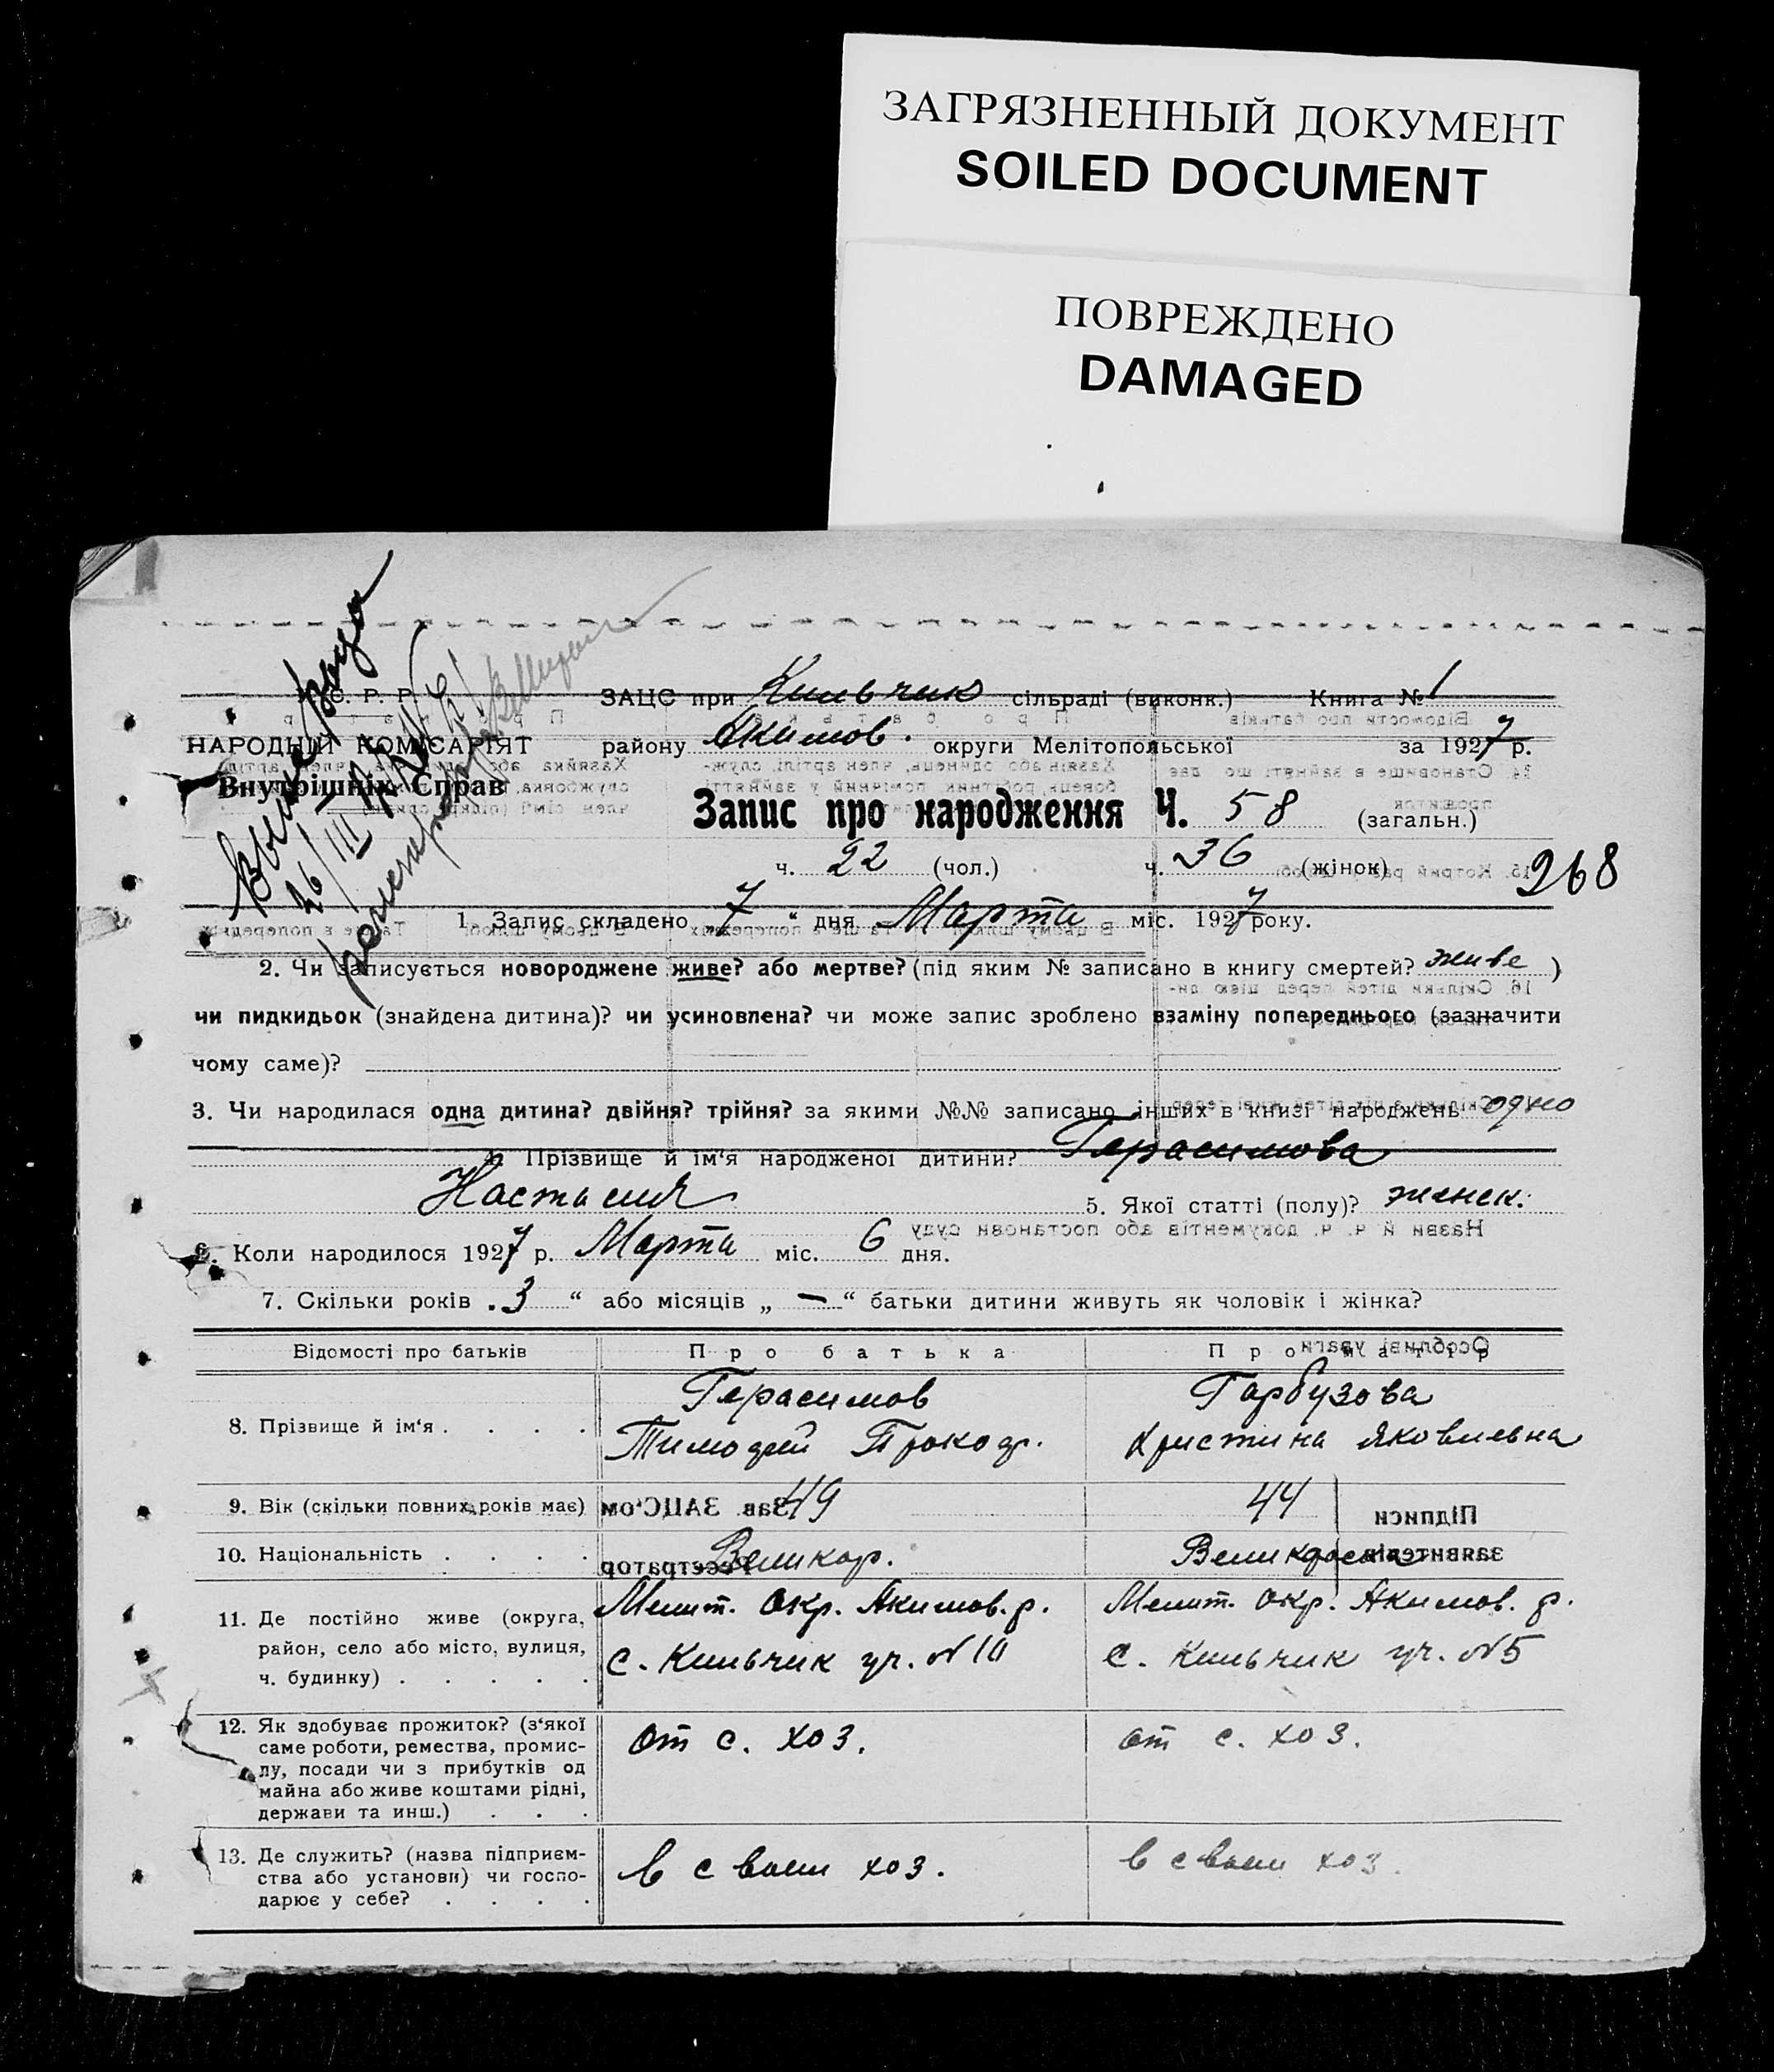 ЗАГРЯЗНЕННЫЙ ДОКУМЕНТ
SOILED DOCUMENT
ПОВРЕЖДЕНО
DAMAGED
С. Р. Р.
НАРОДНІЙ КОМІСАРІЯТ
Внутрішніх Справ
26/III
ЗАЦС при Кильчик сільраді (виконк.) Книга № 1
району Акимов. округи Мелітопольської за 1927 р.
Запис про народження Ч. 58 (загальн.)
ч. 22 (чол.) ч. 36 (жінок)
268
1. Запис складено 7 “ дня Марта міс. 1927 року.
2. Чи записується новороджене живе? або мертве? (під яким № записано в книгу смертей? живе )
чи пидкидьок (знайдена дитина)? чи усиновлена? чи може запис зроблено взаміну попереднього (зазначити
чому саме)?
3. Чи народилася одна дитина? двійня? трійня? за якими №№ записано інших в книзі народжень одно
4. Прізвище й ім‘я народженої дитини? Герасимова
Настасия 5. Якої статті (полу)? женск.
6. Коли народилося 1927 р. Марта міс. 6 дня.
7. Скільки років 3 “ або місяців „ — “ батьки дитини живуть як чоловік і жінка?
Відомості про батьків Про батька Про матір
8. Прізвище й ім‘я . . . . Герасимов Тимофей Прокоф. Гарбузова Кристина Яковлевна
9. Вік (скільки повних років має) 49 44
10. Національність . . . . Великор. Великороска
11. Де постійно живе (округа, Мелит. Окр. Акимов. р. Мелит. Окр. Акимов. р.
район, село або місто, вулиця, с. Кильчик уч. №10 с. Кильчик уч. №5
ч. будинку) . . . . .
12. Як здобуває прожиток? (з‘якої от с. хоз. от с. хоз.
саме роботи, ремества, промис-
лу, посади чи з прибутків од
майна або живе коштами рідні,
держави та инш.) . . .
13. Де служить? (назва підприєм- в своем хоз. в своем хоз.
ства або установи) чи госпо-
дарює у себе? . . . .